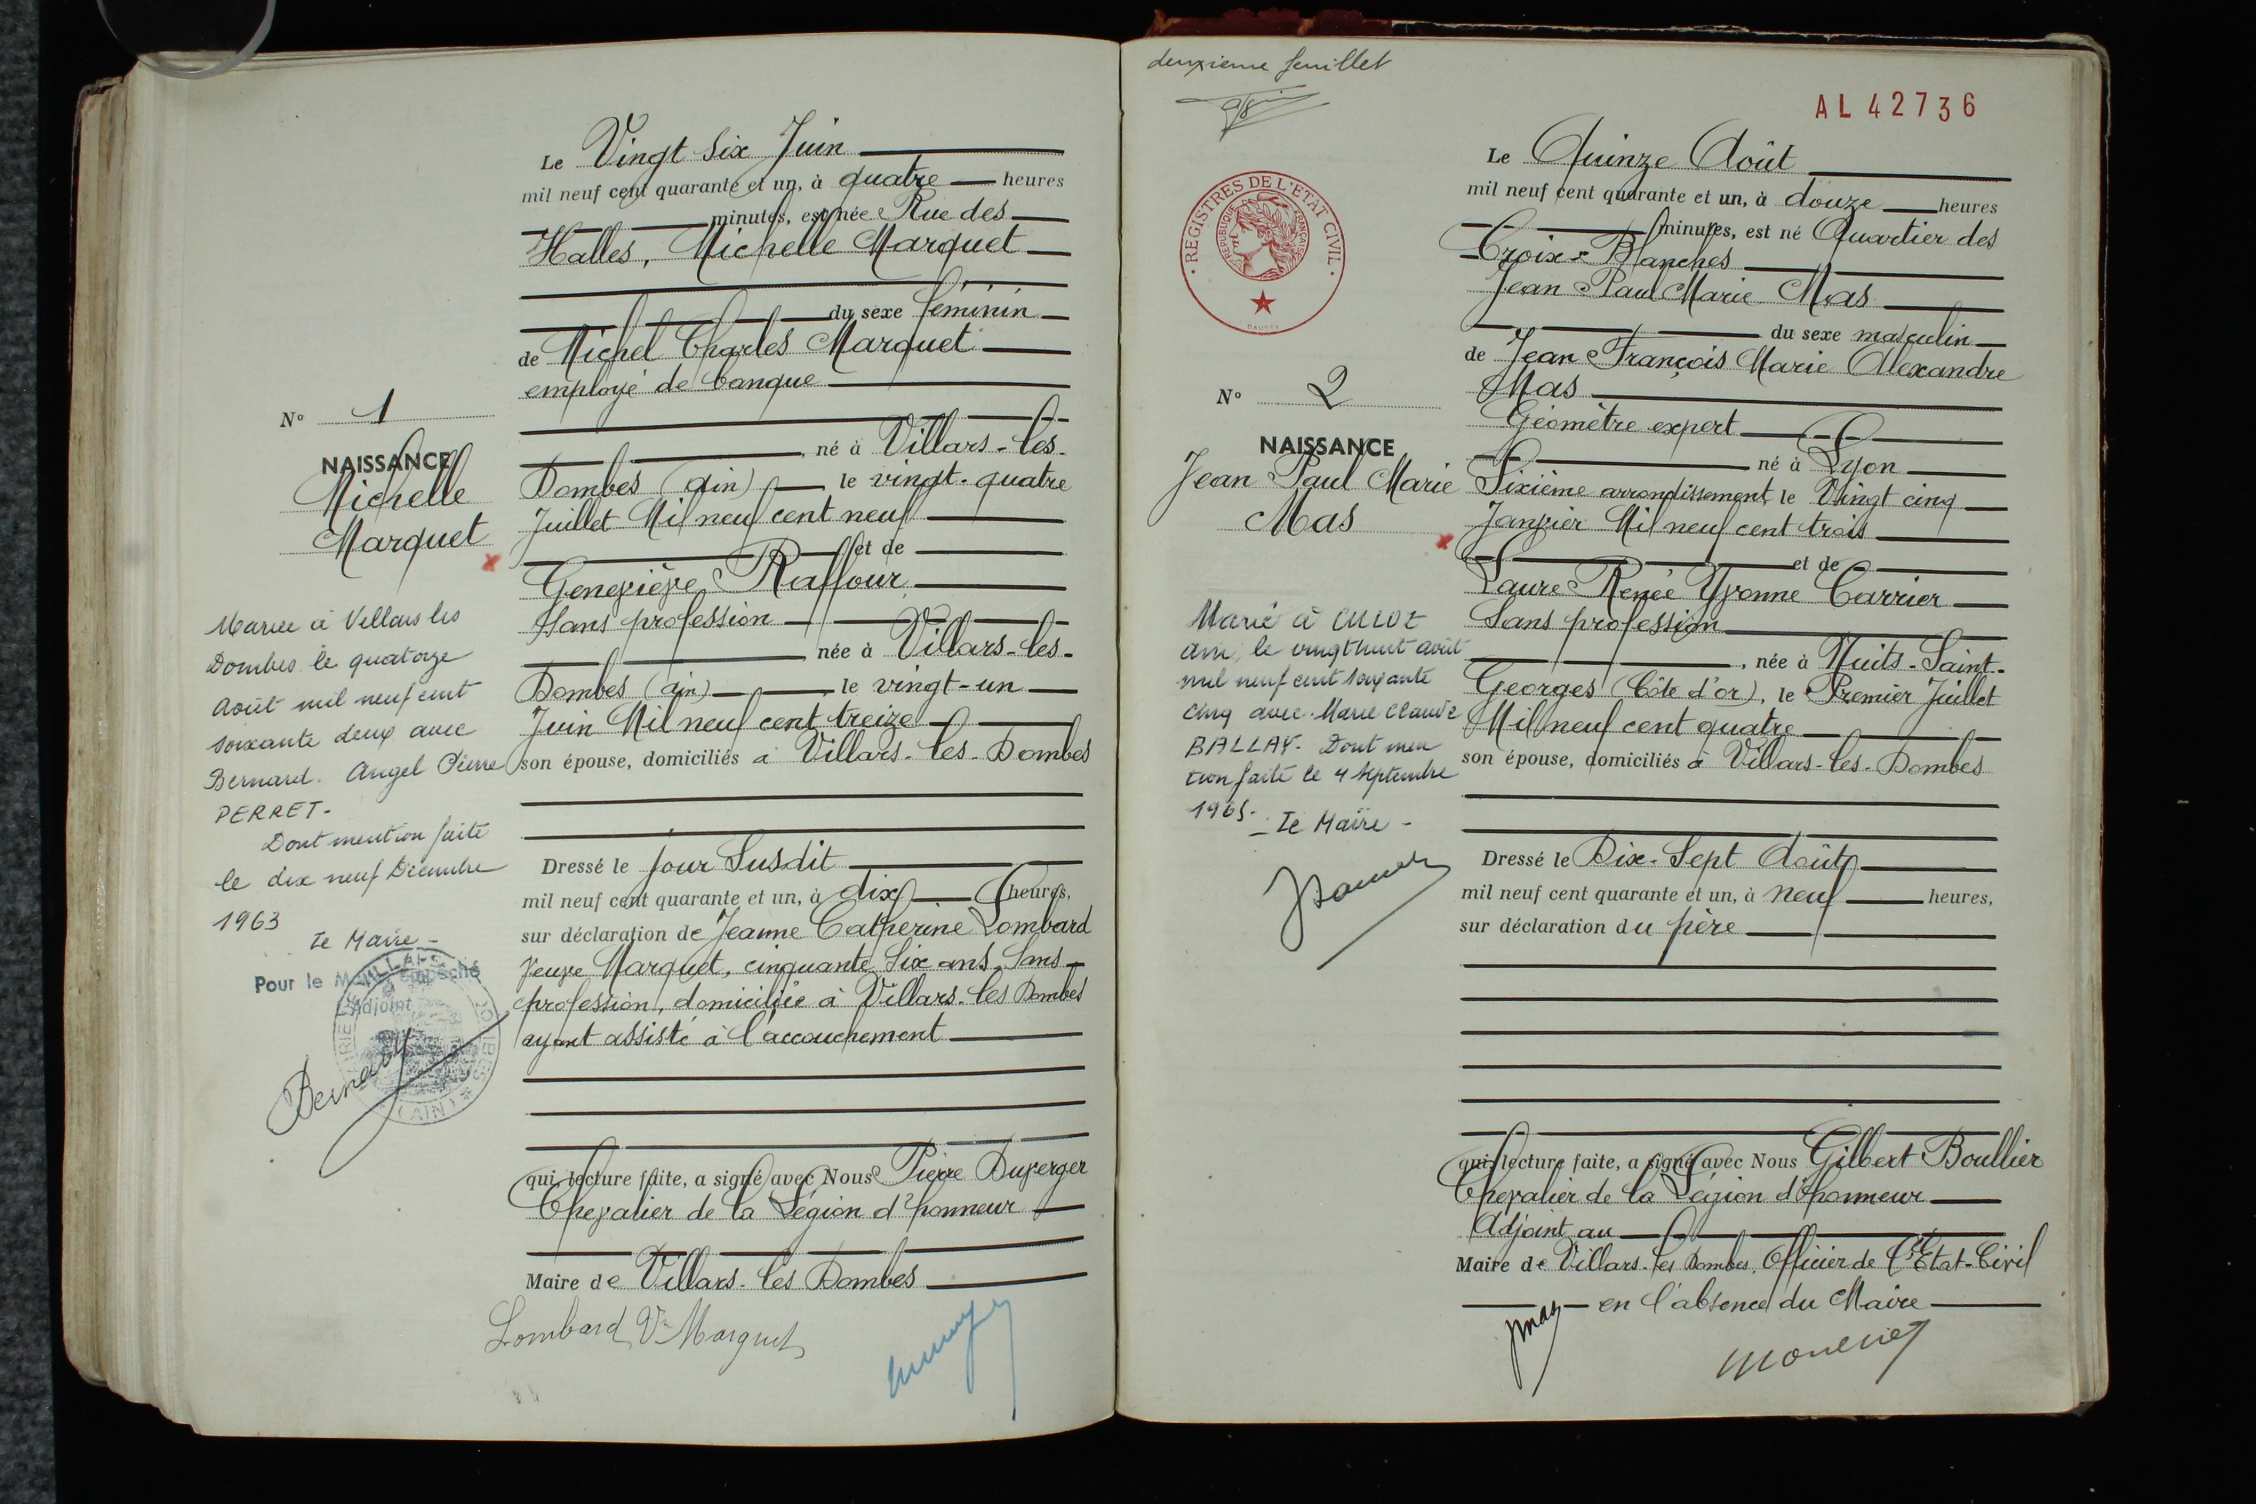 Le Vingt Six Juin
mil neuf cent quarante et un, à quatre heures
minutes, est née Rue des
Halles, Michelle Marquet
du sexe féminin
de Michel Charles Marquet
employé de banque
né à Villars-les-
Dombes (ain) le vingt-quatre
Juillet Mil neuf cent neuf
et de
Geneviève Raffour,
Sans profession
née à Villars-les-
Dombes (ain) le vingt-un
Juin Mil neuf cent treize
son épouse, domiciliés à Villars-les-Dombes
Dressé le jour Susdit
mil neuf cent quarante et un, à dix heures,
sur déclaration de Jeanne Catherine Lombard
veuve Marquet, cinquante Six ans, Sans
profession, domiciliée à Villars-les Dombes
ayant assisté à l'accouchement
qui, lecture faite, a signé avec Nous Pierre Duverger
Chevalier de la Légion d'honneur
Maire de Villars-les Dombes
Lombard Ve Marquet
N° 1
NAISSANCE
Michelle
Marquet
Mariée à Villars les
Dombes le quatorze
Août mil neuf cent
soixante deux avec
Bernard Angel Pierre
PERRET-
Dont mention faite
le dix neuf Décembre
1963
Le Maire-
Pour le Maire Empêché
L'Adjoint
(AIN)
deuxième feuillet
AL 42736
REGISTRES DE L'ETAT CIVIL
REPUBLIQUE FRANÇAISE
Le Quinze Août
mil neuf cent quarante et un, à douze heures
minutes, est né Quartier des
Croix-Blanches
Jean Paul Marie Mas
du sexe masculin
de Jean François Marie Alexandre
Mas
Géomètre expert
né à Lyon
Sixième arrondissement, le Vingt cinq
Janvier Mil neuf cent trois
et de
Laure Renée Yvonne Carrier
Sans profession
, née à Nuits-Saint-
Georges (Côte d'or), le Premier Juillet
Mil neuf cent quatre
son épouse, domiciliés à Villars-les-Dombes
Dressé le Dix-Sept Août
mil neuf cent quarante et un, à neuf heures,
sur déclaration du père
qui, lecture faite, a signé avec Nous Gilbert Boullier
Chevalier de la Légion d'honneur
Adjoint au
Maire de Villars-les Dombes, Officier de l'Etat-Civil
en l'absence du Maire
N° 2
NAISSANCE
Jean Paul Marie
Mas
Marié à CULOZ
Ain, le vingt huit août
mil neuf cent soixante
cinq avec Marie Claude
BALLAY- Dont men
tion faite le 4 Septembre
1965-
Le Maire-